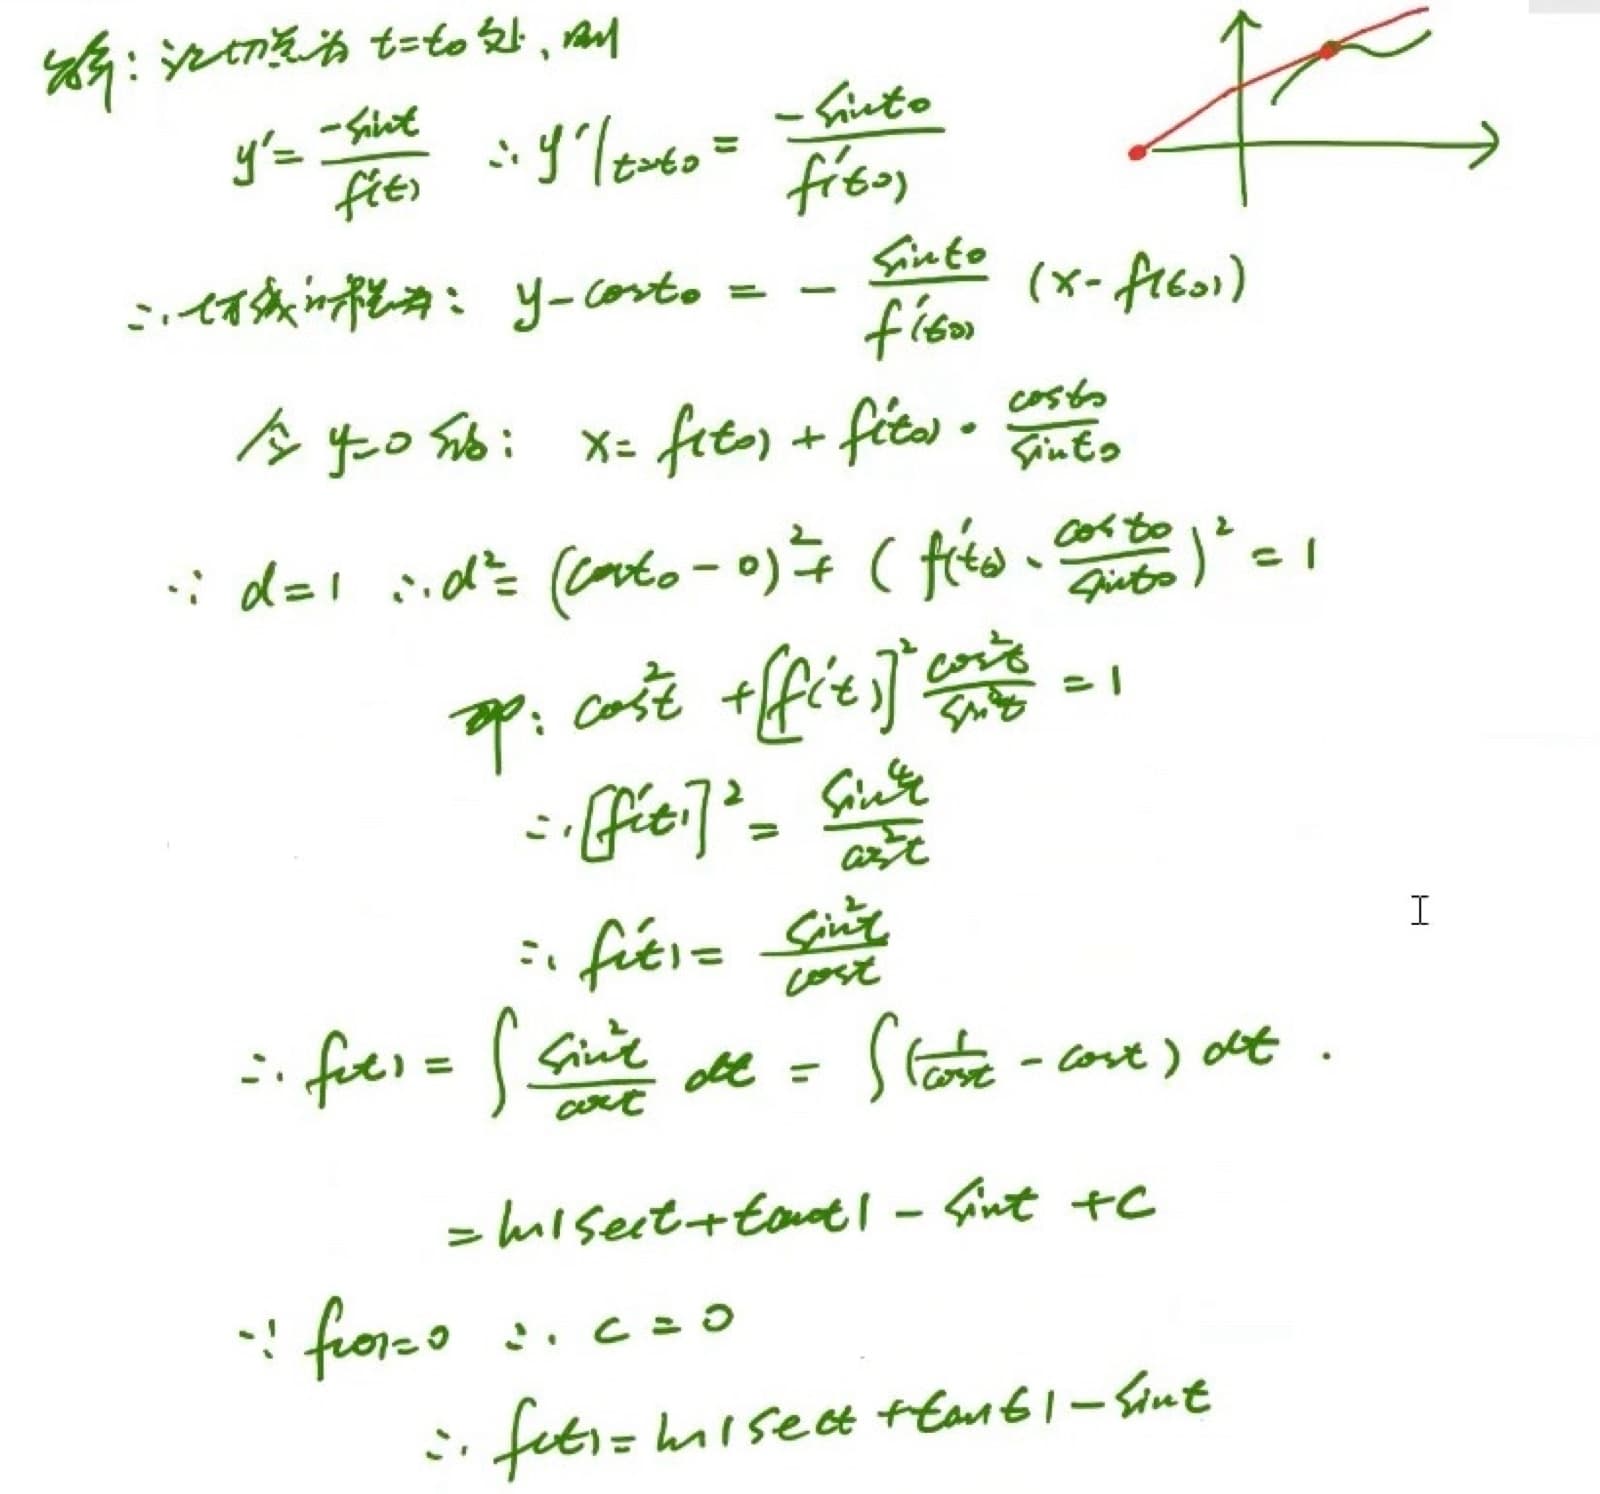 解：设切点为 t=t₀处，则
y′= -sint/f′(t) ∴ y′|t=t₀ = -sint₀/f′(t₀)
∴切线方程为： y-cost₀ = - sint₀/f′(t₀) (x-f(t₀))
令 y=0 知： x= f(t₀) + f′(t₀)· cost₀/sint₀
∵ d=1 ∴d²= (cost₀-0)² + ( f′(t₀)· cost₀/sint₀ )² = 1
即: cos²t +[f′(t)]² cos²t/sin²t = 1
∴[f′(t)]² = sin⁴t/cos²t
∴ f′(t) = sin²t/cost
∴ f(t) = ∫ sin²t/cost dt = ∫(1/cost - cost) dt .
= ln|sect+tant| - sint +C
∵ f(0)=0 ∴ C = 0
∴ f(t) = ln|sect+tant| - sint